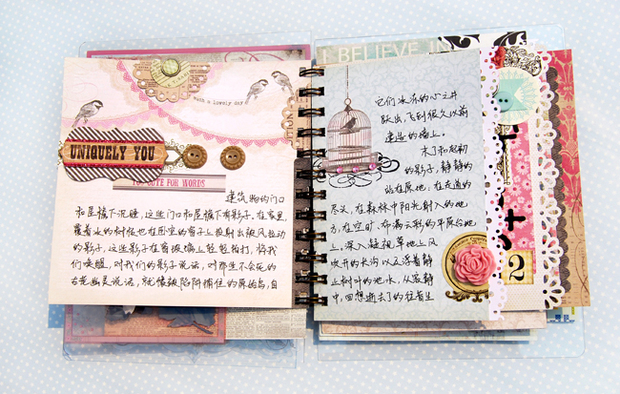 with a lovely day
UNIQUELY YOU
TOO CUTE FOR WORDS
建筑物的门口
和屋檐下沉睡,这些门口和屋檐下有影子,在家里,
覆着冰的树枝也在固定的窗子上投射出被风拉动
的影子,这些影子在窗玻璃上轻轻拍打,将我
们唤醒,对我们的影子说话,对那生不会死的
古老幽灵说话,就像被陷阱捕住的犀鸟,自
BELIEVE IN
它们冰冻的心之井
跃出,飞到很久以前
建造的墙上。
木了和
的影子,静静的
站在原地,在走道的
尽头,在森林中阳光射入的地
方,在空旷、布满云彩的平屋台地
上,深入凝视草地上风
吹开的长沟以及浮着静
止树叶的池水,从寂静
中,回想逝去了的往昔生
2